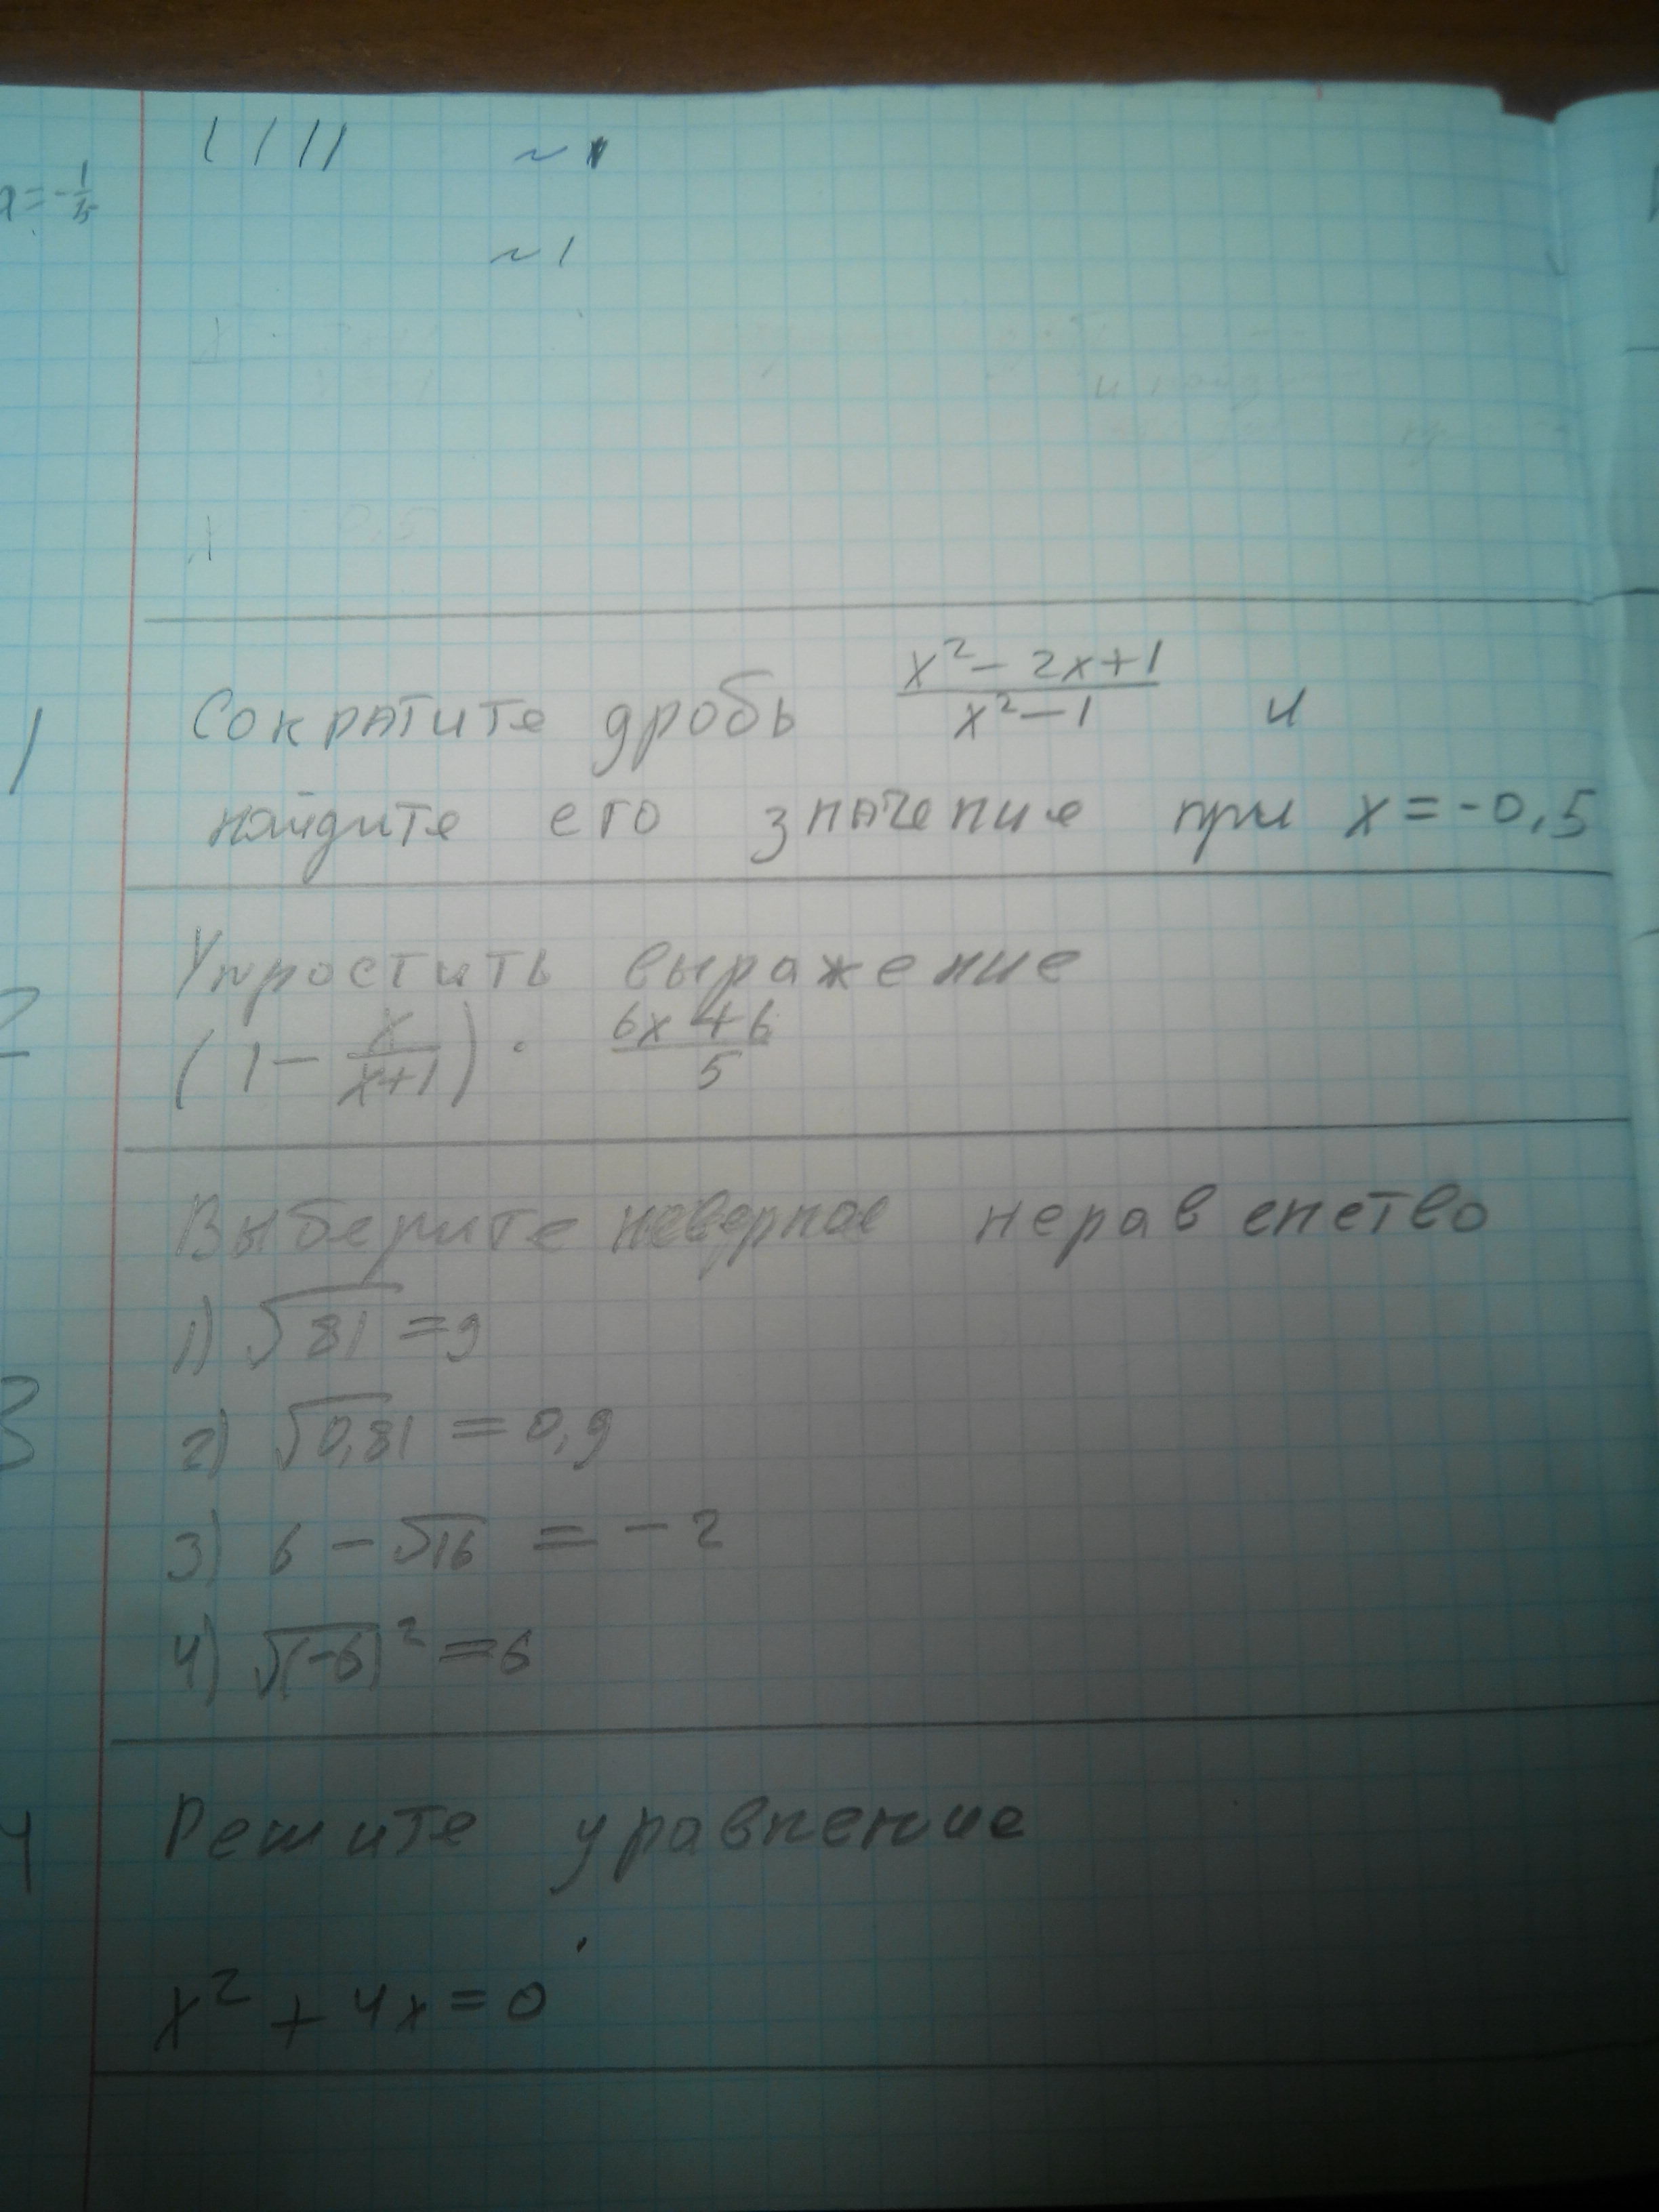 a=-1/5
~1
Сократите дробь (x²-2x+1)/(x²-1) и
1
найдите его значение при x=-0,5
Упростить выражение
2
(1-x/(x+1)) · (6x+6)/5
Выберите неверное неравенство
1) √81=9
2) √0,81=0,9
3
3) 6-√16=-2
4) √(-6)²=6
4
Решите уравнение
x²+4x=0